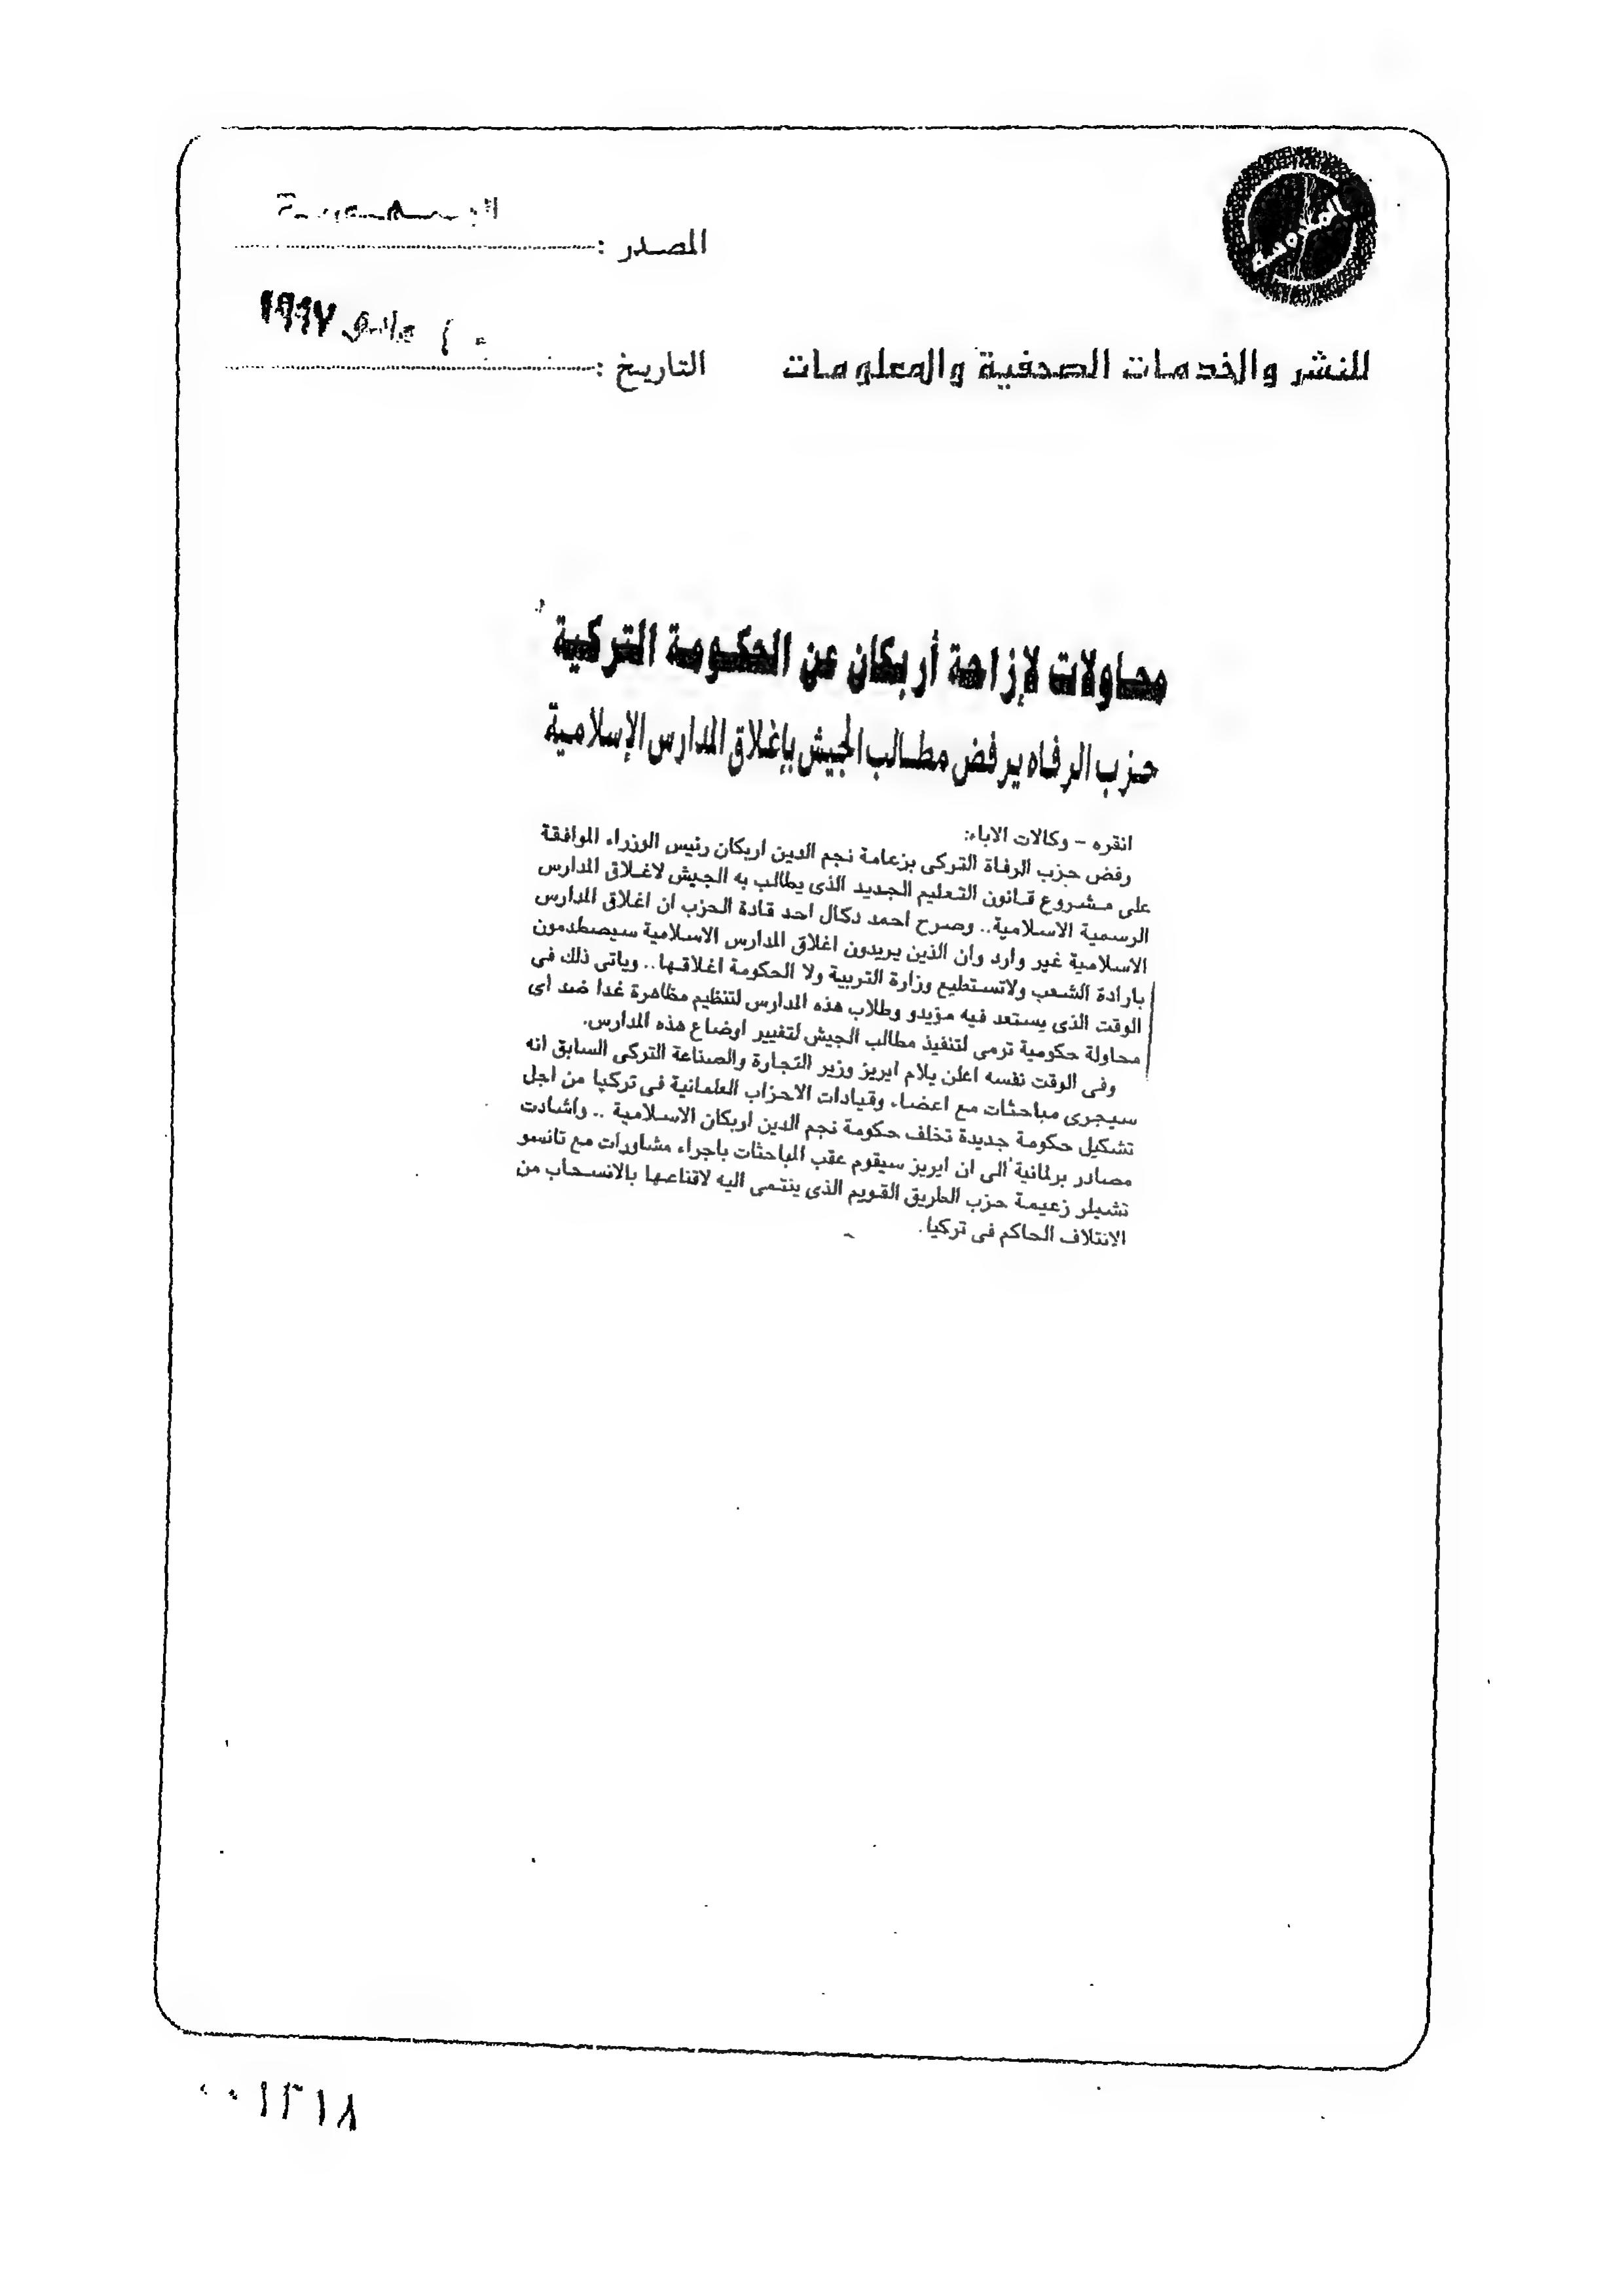 المصدر :
التاريخ :
مايو ١٩٩٧
للنشر والخدمات الصحفية والمعلومات
محاولات لإزاحة أربكان عن الحكومة التركية
حزب الرفاه يرفض مطالب الجيش بإغلاق المدارس الإسلامية
انقره - وكالات الاباء:
رفض حزب الرفاة التركى بزعامة نجم الدين اربكان رئيس الوزراء الموافقة
على مشروع قانون التعليم الجديد الذى يطالب به الجيش لاغلاق المدارس
الرسمية الاسلامية.. وصرح احمد دكال احد قادة الحزب ان اغلاق المدارس
الاسلامية غير وارد وان الذين يريدون اغلاق المدارس الاسلامية سيصطدمون
بارادة الشعب ولاتستطيع وزارة التربية ولا الحكومة اغلاقها.. وياتى ذلك فى
الوقت الذى يستعد فيه مؤيدو وطلاب هذه المدارس لتنظيم مظاهرة غدا ضد اى
محاولة حكومية ترمى لتنفيذ مطالب الجيش لتغيير اوضاع هذه المدارس.
وفى الوقت نفسه اعلن يلام ايريز وزير التجارة والصناعة التركى السابق انه
سيجرى مباحثات مع اعضاء وقيادات الاحزاب العلمانية فى تركيا من اجل
تشكيل حكومة جديدة تخلف حكومة نجم الدين اربكان الاسلامية .. واشادت
مصادر برلمانية الى ان ايريز سيقوم عقب المباحثات باجراء مشاورات مع تانسو
تشيلر زعيمة حزب الطريق القويم الذى ينتمى اليه لاقناعها بالانسحاب من
الائتلاف الحاكم فى تركيا.